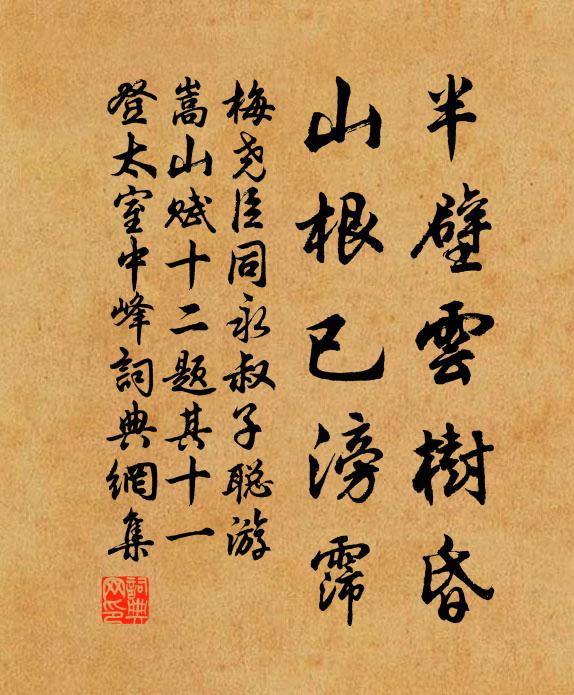 半壁雲樹昏
山根已滂霈
梅尧臣同永叔子聪游
嵩山赋十二题其十一
登太室中峰詞典網集
詞典網印